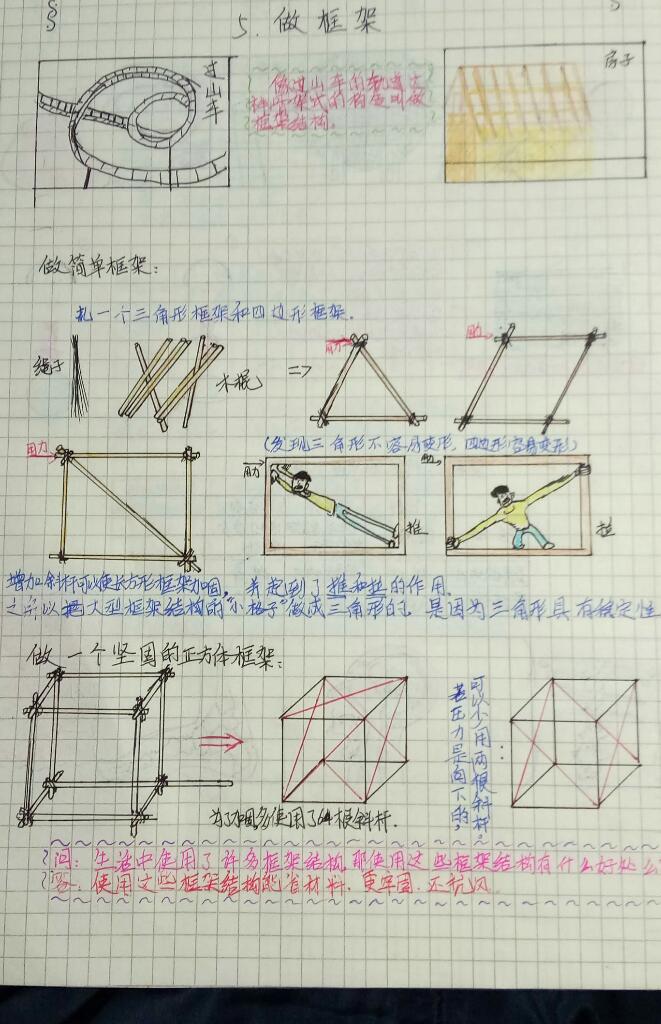 5. 做框架
过山车
像过山车的轨道这
架式的构造叫做
框架结构。
房子
做简单框架：
扎一个三角形框架和四边形框架。
绳子
木棍
=>
用力
用力
(发现三角形不容易变形，四边形容易变形)
用力
用力
推
用力
拉
增加斜杆可以使长方形框架加固，并起到了推和拉的作用。
之所以把大型框架结构的“小格子”做成三角形的，是因为三角形具有稳定性
做一个坚固的正方体框架：
为了加固多使用了6根斜杆.
若压力是向下的，
可以少用两根斜杆。
问：生活中使用了许多框架结构，那使用这些框架结构有什么好处么
答：使用这些框架结构能省材料，更牢固，还抗风